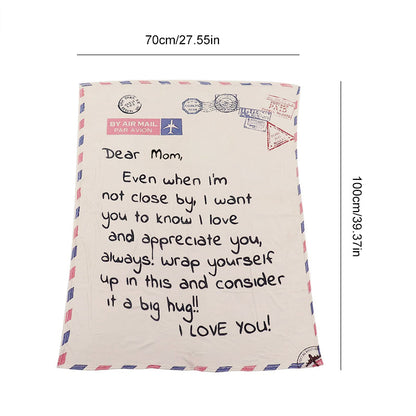 70cm/27.55in
BY AIR MAIL
PAR AVION
Dear Mom,
Even when i'm
not close by, I want
you to know I love
and appreciate you,
always! wrap yourself
up in this and consider
it a big hug!!
I LOVE YOU!
100cm/39.37in